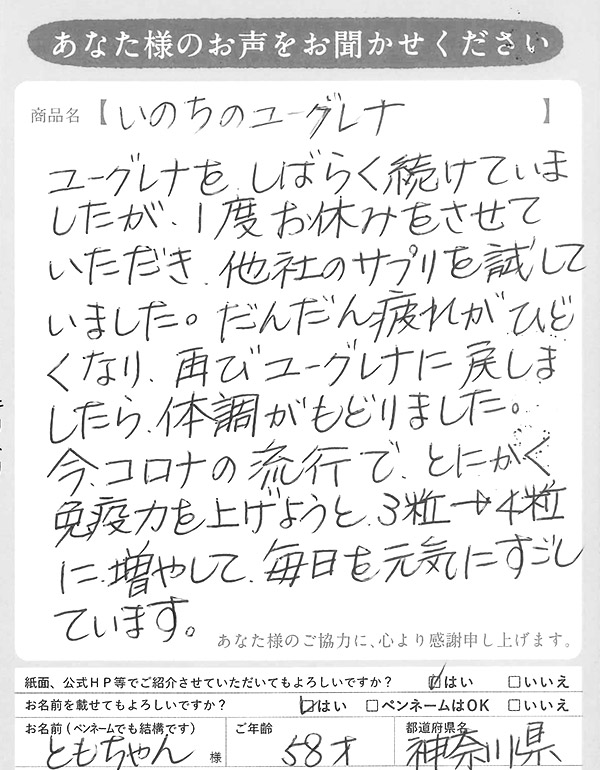 あなた様のお声をお聞かせください
商品名【いのちのユーグレナ】
ユーグレナを、しばらく続けていま
したが、1度お休みをさせて
いただき、他社のサプリを試して
いました。だんだん疲れがひど
くなり、再びユーグレナに戻しま
したら、体調がもどりました。
今、コロナの流行で、とにかく
免疫力を上げようと、3粒→4粒
に、増やして、毎日を元気にすごし
ています。
あなた様のご協力に、心より感謝申し上げます。
紙面、公式HP等でご紹介させていただいてもよろしいですか? ☑はい □いいえ
お名前を載せてもよろしいですか? ☑はい □ペンネームはOK □いいえ
お名前(ペンネームでも結構です) ご年齢 都道府県名
ともちゃん 様 58才 神奈川県